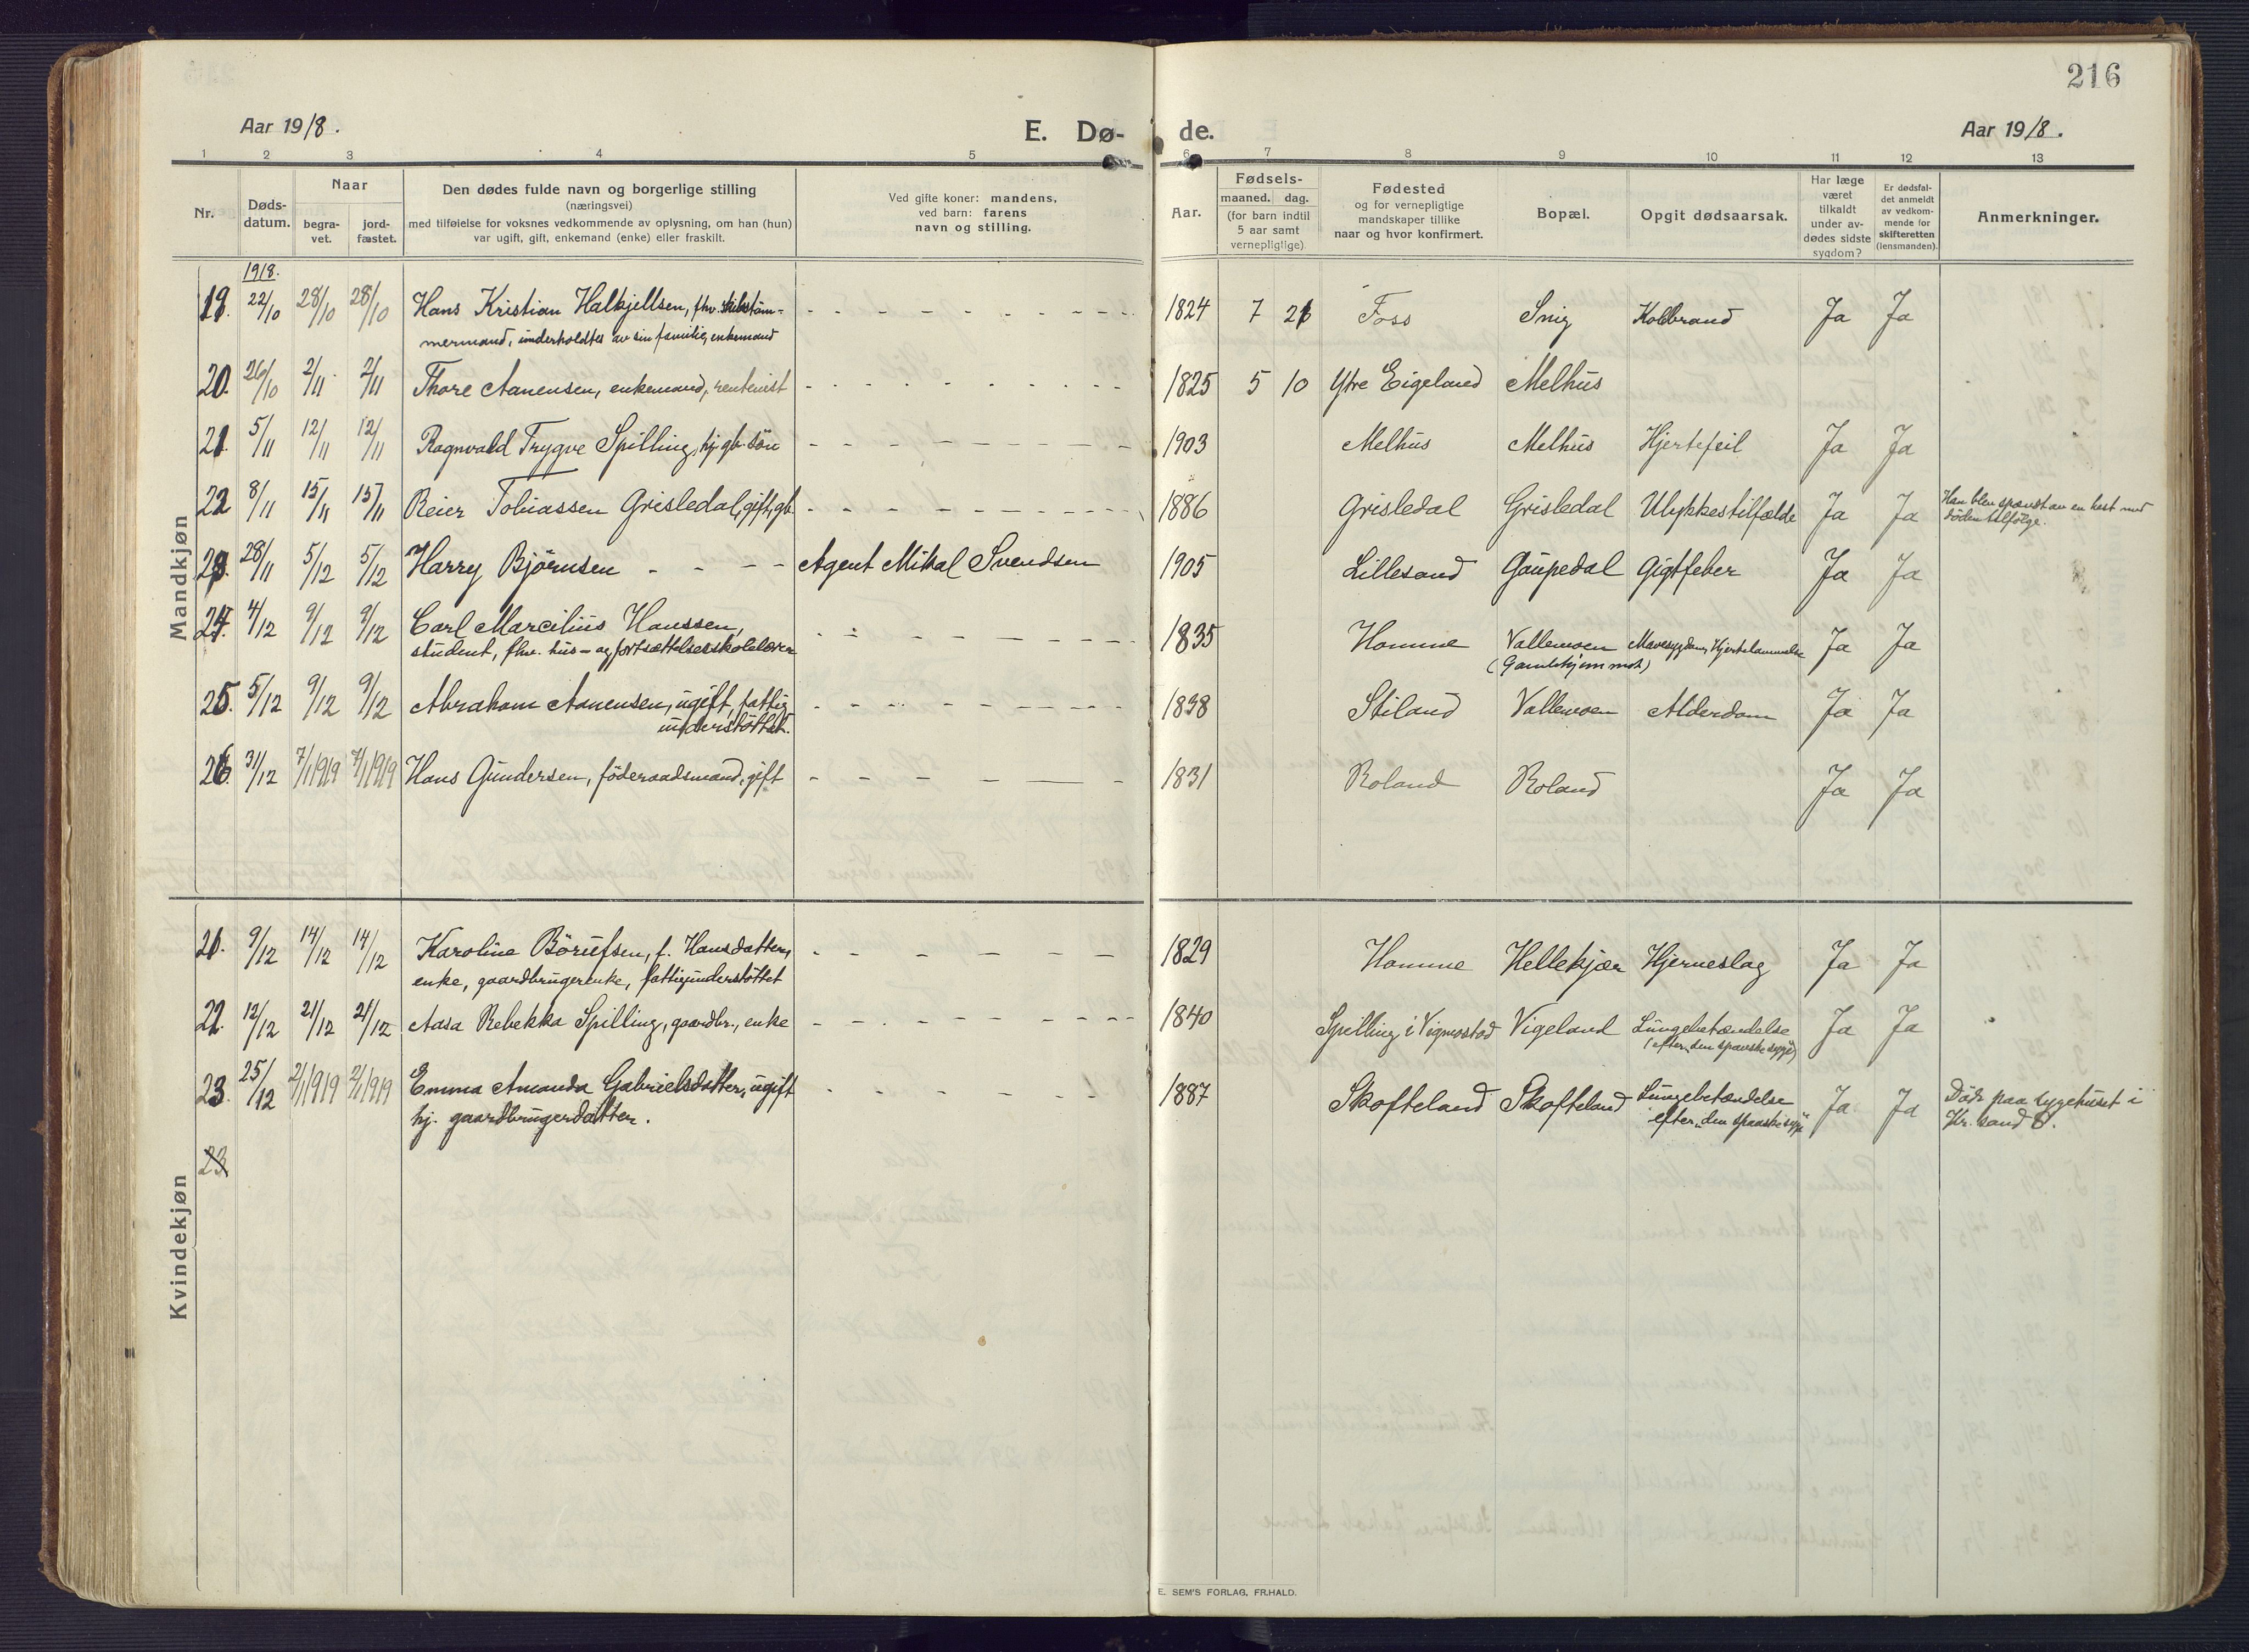 216
Aar 1918.
E. Dø-
de.
Aar 1918.
1 2 3 4 5 6 7 8 9 10 11 12 13
Nr.
Døds-
datum.
Naar
begra-
vet.
jord-
fæstet.
Den dødes fulde navn og borgerlige stilling
(næringsvei)
med tilføielse for voksnes vedkommende av oplysning, om han (hun)
var ugift, gift, enkemand (enke) eller fraskilt.
Ved gifte koner: mandens,
ved barn: farens
navn og stilling.
Aar.
Fødsels-
maaned. dag.
(for barn indtil
5 aar samt
vernepligtige)
Fødested
og for vernepligtige
mandskaper tillike
naar og hvor konfirmert.
Bopæl.
Opgit dødsaarsak.
Har læge
været
tilkaldt
under av-
dødes sidste
sygdom?
Er dødsfal-
det anmeldt
av vedkom-
mende for
skifteretten
(lensmanden).
Anmerkninger.
Mandkjøn
1918.
19. 22/10 28/10 28/10 Hans Kristian Halkjellsen, fhv. skibstøm- 1824 7 26 Foss Snig Koldbrand Ja Ja
mermand, underholdtes av sin familie, enkemand
20. 26/10 2/11 2/11 Thore Aanensen, enkemand, rentenist 1825 5 10 Ytre Eigeland Melhus
21. 5/11 12/11 12/11 Ragnvald Trygve Spilling, hj. gb. søn 1903 Melhus Melhus Hjertefeil Ja Ja
22 8/11 15/11 15/11 Reier Tobiassen Grisledal, gift, gb. 1886 Grisledal Grisledal Ulykkestilfælde Ja Ja Han blev spændt av en hest med
døden tilfølge.
23. 28/11 5/12 5/12 Harry Bjørnsen Agent Mikal Svendsen 1905 Lillesand Gaupedal Gigtfeber Ja Ja
24. 4/12 9/12 9/12 Carl Marcilius Hanssen, 1835 Homme Vallemoen Mavesygdom, Hjertelammelse Ja Ja
student, fhv. hus- og fortsættelsesskolelærer (Gamlehjemmet)
25. 5/12 9/12 9/12 Abraham Aanensen, ugift, fattig 1838 Stiland Vallemoen Alderdom Ja Ja
understøttet.
26. 31/12 7/1 1919 7/1 1919 Hans Gundersen, føderaadsmand, gift 1831 Roland Roland Ja Ja
Kvindekjøn
21. 9/12 14/12 14/12 Karoline Børufsen, f. Hansdatter, 1829 Homme Hellekjær Hjerneslag Ja Ja
enke, gaardbrugerenke, fattigunderstøttet
22. 12/12 21/12 21/12 Aasa Rebekka Spilling, gaardbr., enke 1840 Spilling i Vigmostad Vigeland Lungebetændelse Ja Ja
(efter „den spanske syge")
23. 25/12 2/1 1919 2/1 1919 Emma Amanda Gabrielsdatter, ugift 1887 Skofteland Skofteland Lungebetændelse Ja Ja Døde paa sygehuset i
hj. gaardbrugerdatter. efter „den spanske syge" Kr.sand S.
23
E. SEM'S FORLAG, FR.HALD.